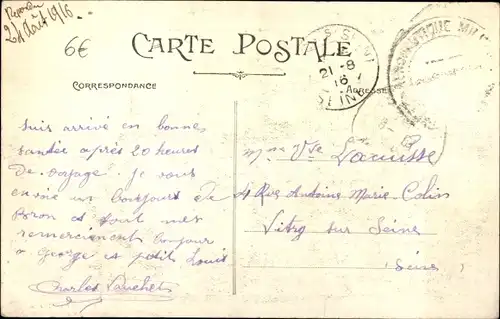 24 août 1916
6€
CARTE POSTALE
21-8
16
SEINE
CORRESPONDANCE
ADRESSE
Suis arrivé en bonne
santée après 20 heures
de voyage. Je vous
envoie un bonjour de
Bron et tout mes
remerciement bonjour
a George et petit Louis
Charles
Mme Vve
4 Rue Antoine Marie Colin
Vitry sur Seine
Seine